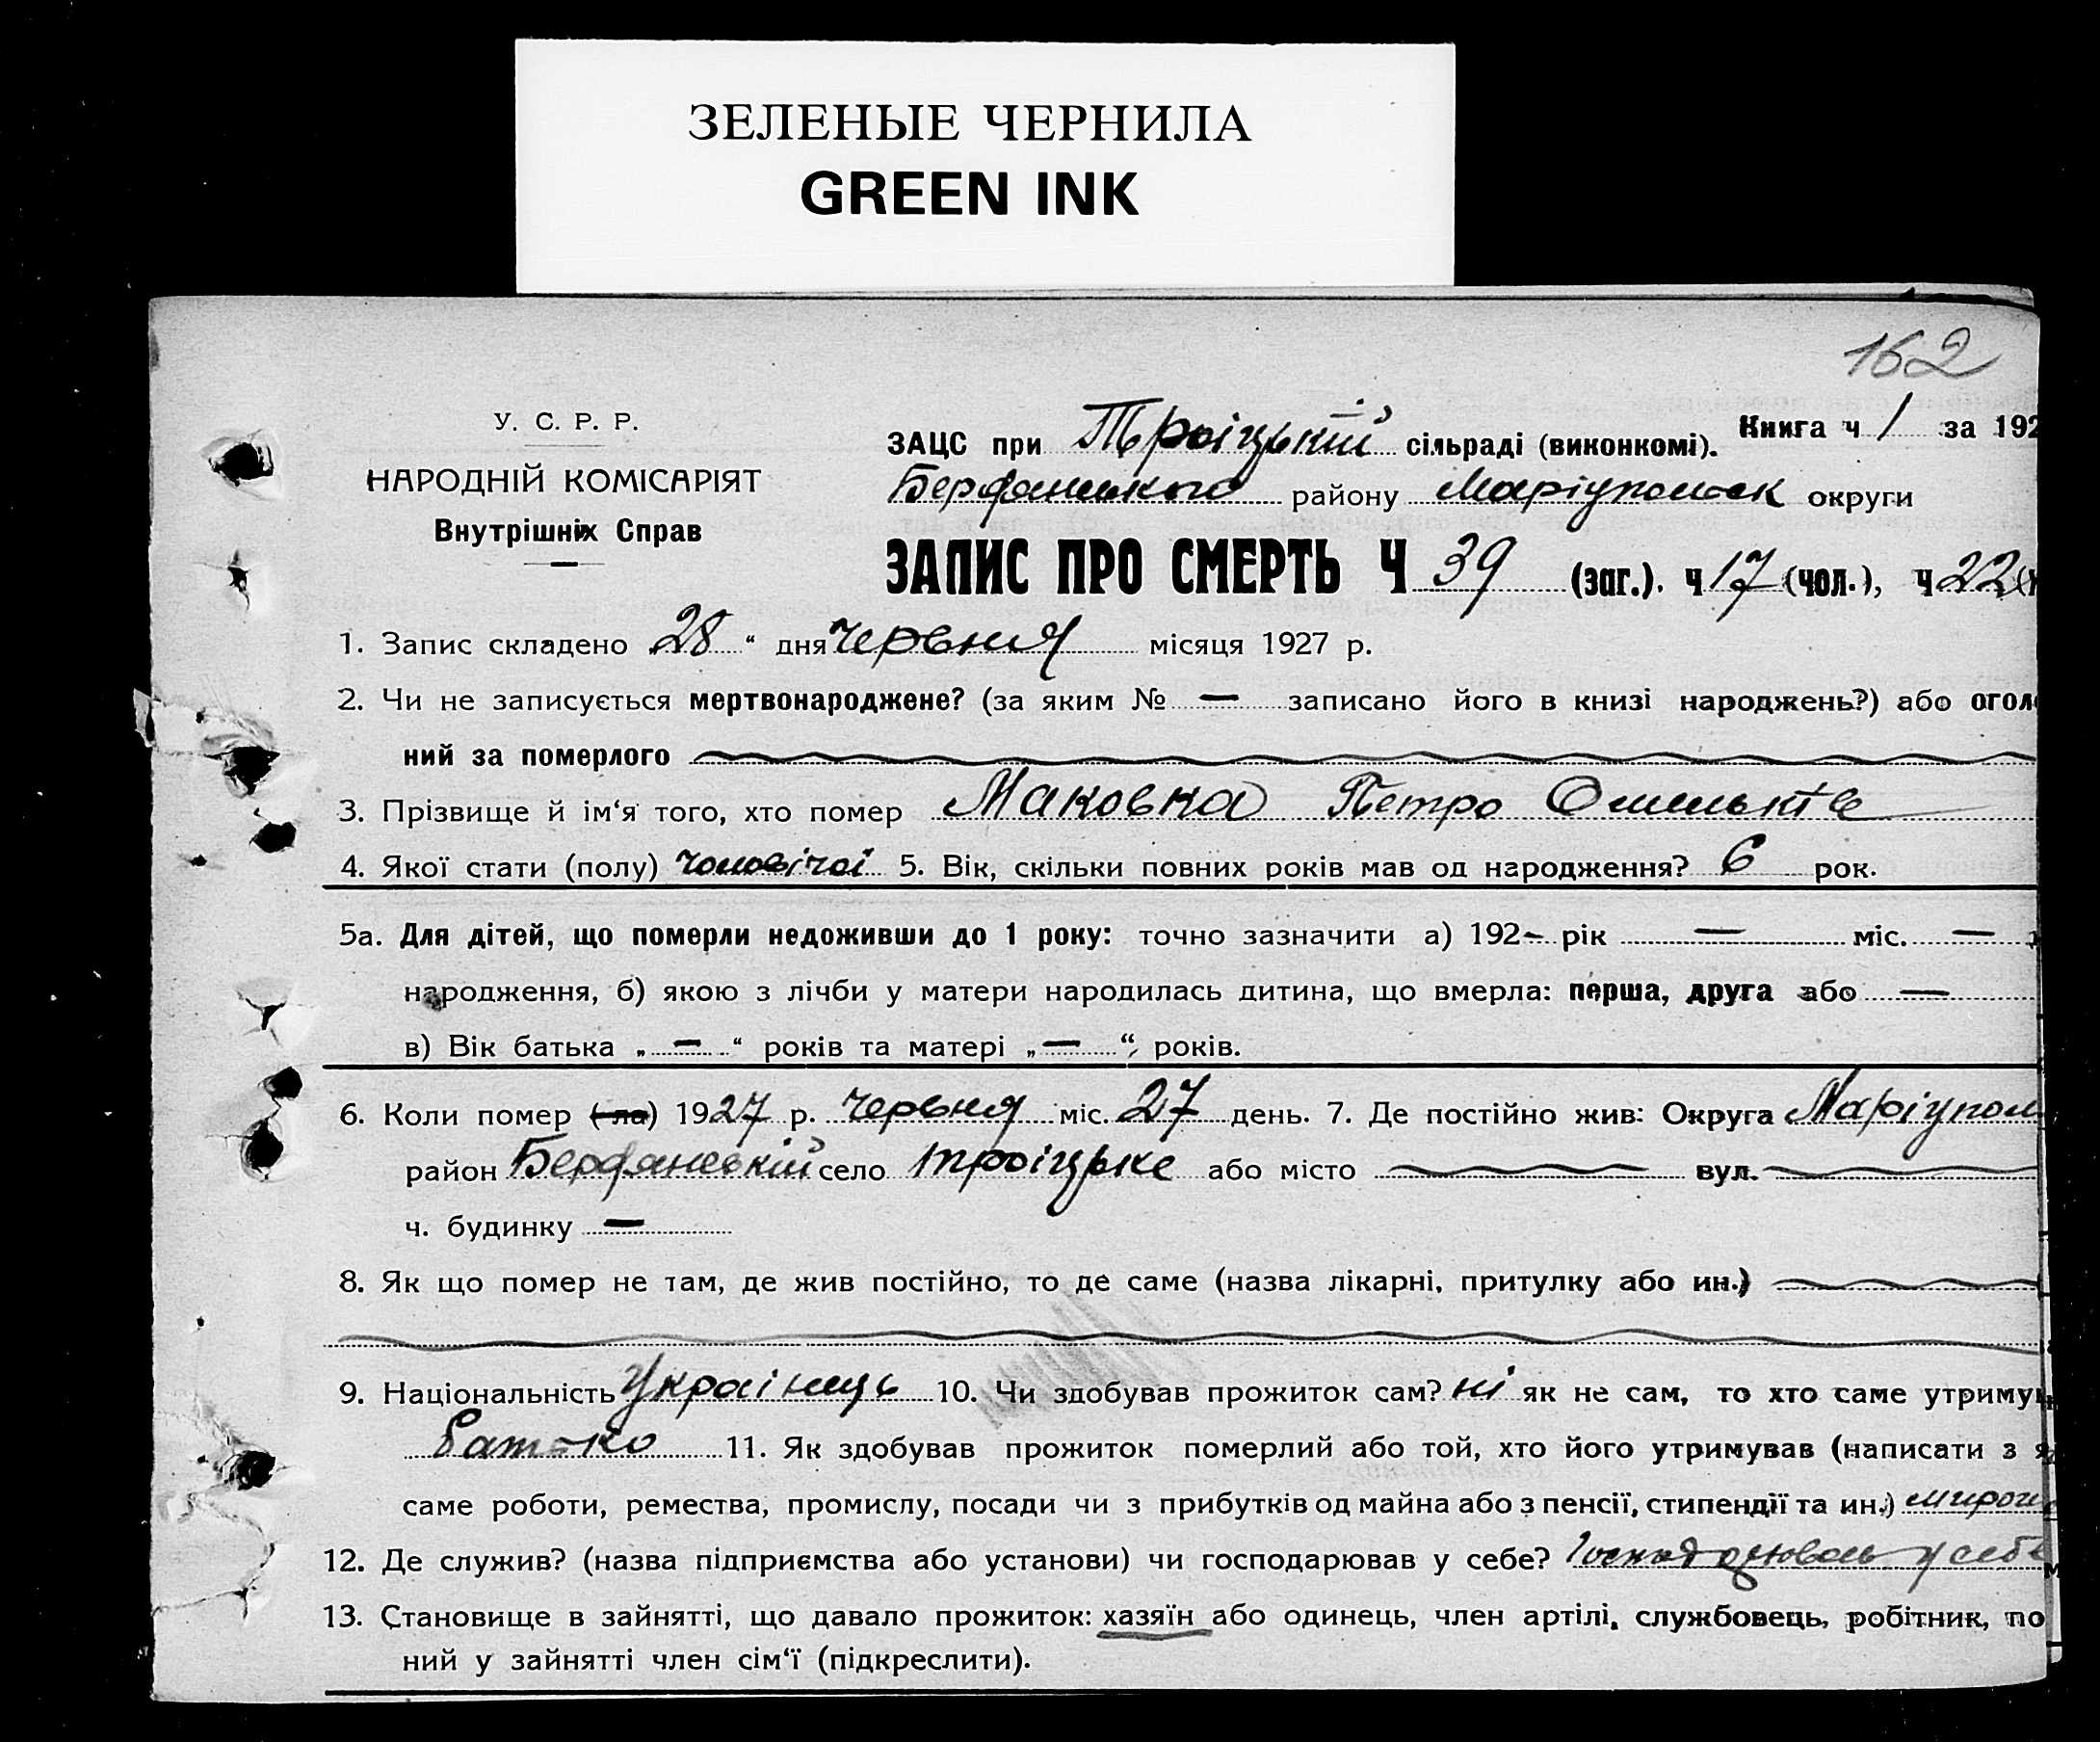 ЗЕЛЕНЫЕ ЧЕРНИЛА
GREEN INK
162
У. С. Р. Р.
НАРОДНІЙ КОМІСАРІЯТ
Внутрішніх Справ
ЗАЦС при Троіцькій сільраді (виконкомі). Книга ч 1 за 192
Бердянського району Маріупольск округи
ЗАПИС ПРО СМЕРТЬ Ч 39 (заг.). ч 17 (чол.), ч 22
1. Запис складено „28“ дня червня місяця 1927 р.
2. Чи не записується мертвонароджене? (за яким № — записано його в книзі народжень?) або огол
ний за померлого
3. Прізвище й ім‘я того, хто помер Маковка Петро
4. Якої стати (полу) чоловічоі 5. Вік, скільки повних років мав од народження? 6 рок.
5а. Для дітей, що померли недоживши до 1 року: точно зазначити а) 192– рік — міс. —
народження, б) якою з лічби у матери народилась дитина, що вмерла: перша, друга або —
в) Вік батька „—“ років та матері „—“, років.
6. Коли помер (ла) 1927 р. червня міс. 27 день. 7. Де постійно жив: Округа Маріупол
район Бердянській село троіцьке або місто вул.
ч. будинку —
8. Як що помер не там, де жив постійно, то де саме (назва лікарні, притулку або ин.)
9. Національність Україниць 10. Чи здобував прожиток сам? ні як не сам, то хто саме утриму
Батько 11. Як здобував прожиток померлий або той, хто його утримував (написати з я
саме роботи, ремества, промислу, посади чи з прибутків од майна або з пенсії, стипендії та ин.)
12. Де служив? (назва підприємства або установи) чи господарював у себе? Господарював у себе
13. Становище в зайнятті, що давало прожиток: хазяїн або одинець, член артілі, службовець, робітник, по
ний у зайнятті член сім‘ї (підкреслити).